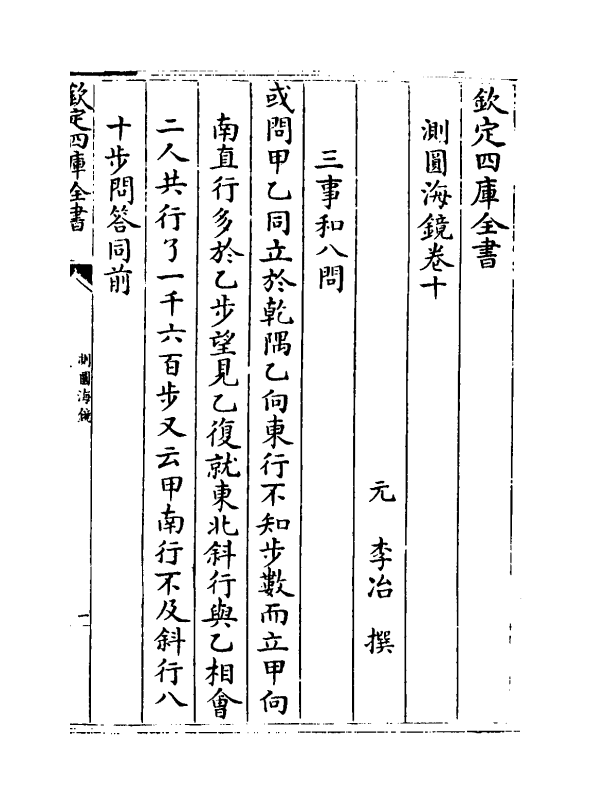 欽定四庫全書
測圓海鏡卷十
元　李冶　撰
三事和八問
或問甲乙同立於乾隅乙向東行不知步數而立甲向
南直行多於乙步望見乙復就東北斜行與乙相會
二人共行了一千六百步又云甲南行不及斜行八
十步問答同前
欽定四庫全書
測圓海鏡
一